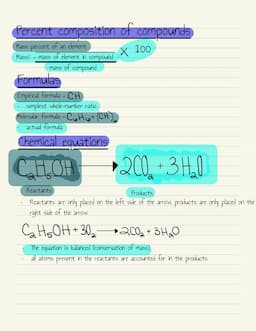 Percent composition of compounds
Mass percent of an element
Mass% = mass of element in compound × 100
mass of compound
Formulas
Empirical formula - CH
- simplest whole-number ratio
Molecular formula - C₆H₆ = (CH)₆
- actual formula
Chemical equations
C₂H₅OH → 2CO₂ + 3H₂O
Reactants Products
- Reactants are only placed on the left side of the arrow, products are only placed on the
right side of the arrow
C₂H₅OH + 3O₂ → 2CO₂ + 3H₂O
- The equation is balanced (conservation of mass)
- all atoms present in the reactants are accounted for in the products